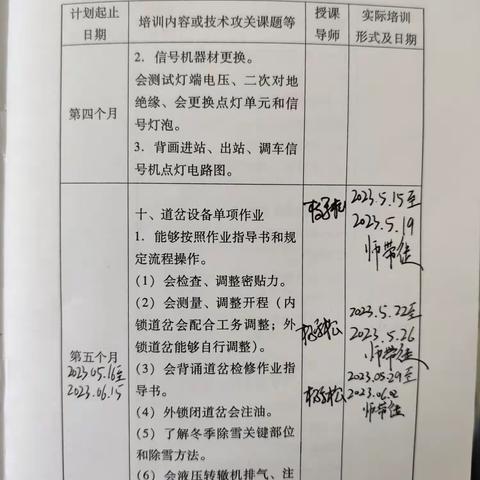 计划起止
日期
培训内容或技术攻关课题等
授课
导师
实际培训
形式及日期
第四个月
2. 信号机器材更换。
会测试灯端电压、二次对地
绝缘、会更换点灯单元和信
号灯泡。
3. 背画进站、出站、调车信
号机点灯电路图。
第五个月
2023.05.16至
2023.06.15
十、道岔设备单项作业
1. 能够按照作业指导书和规
定流程操作。
(1) 会检查、调整密贴力。
(2) 会测量、调整开程（内
锁道岔会配合工务调整；外
锁道岔能够自行调整）。
(3) 会背诵道岔检修作业指
导书。
(4) 外锁闭道岔会注油。
(5) 了解冬季除雪关键部位
和除雪方法。
(6) 会液压转辙机排气、注
2023.5.15至
2023.5.19
师带徒
2023.5.22至
2023.5.26
师带徒
2023.05.29至
2023.06.2
师带徒